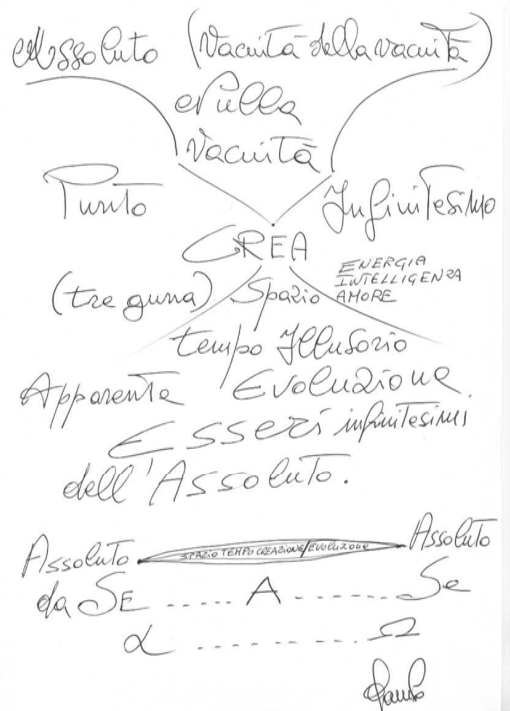 Assoluto (Vacuità della vacuità)
Nulla
Vacuità
Punto Infinitesimo
CREA
ENERGIA
INTELLIGENZA
AMORE
(tre guna) Spazio
tempo Illusorio
Apparente Evoluzione
Esseri infinitesimi
dell'Assoluto.
Assoluto SPAZIO TEMPO CREAZIONE/EVOLUZIONE Assoluto
da SE ..... A ....... Se
α ......... Ω